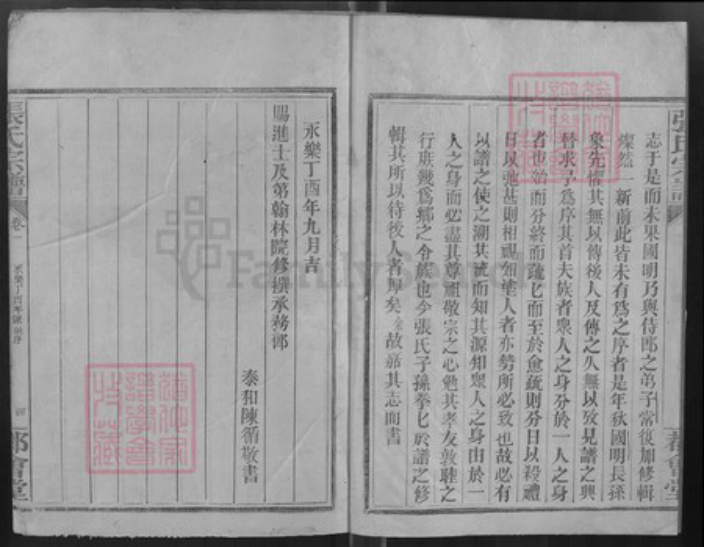 張氏宗譜
都會堂
志于是而未果國明乃與侍郎之弟子當復加修輯
燦然一新前此皆未有爲之序者是年秋國明長孫
象先懼其無以傳後人及傳之久無以攷見譜之興
替求予爲序其首夫族者衆人之身分於一人之身
者也始而分終而疏匕而至於愈疏則分日以殺禮
日以弛甚則相視如塗人者亦勢所必致也故必有
以譜之使之溯其流而知其源知衆人之身由於一
人之身而必盡其尊祖敬宗之心勉其孝友敦睦之
行庶幾爲鄉之令族也今張氏子孫拳匕於譜之修
輯其所以待後人者厚矣余故嘉其志而書
永樂丁酉年九月吉
賜進士及第翰林院修撰承務郎
泰和陳循敬書
張氏宗譜
卷一
永樂丁酉年陳循序
四
都會堂
FamilySearch